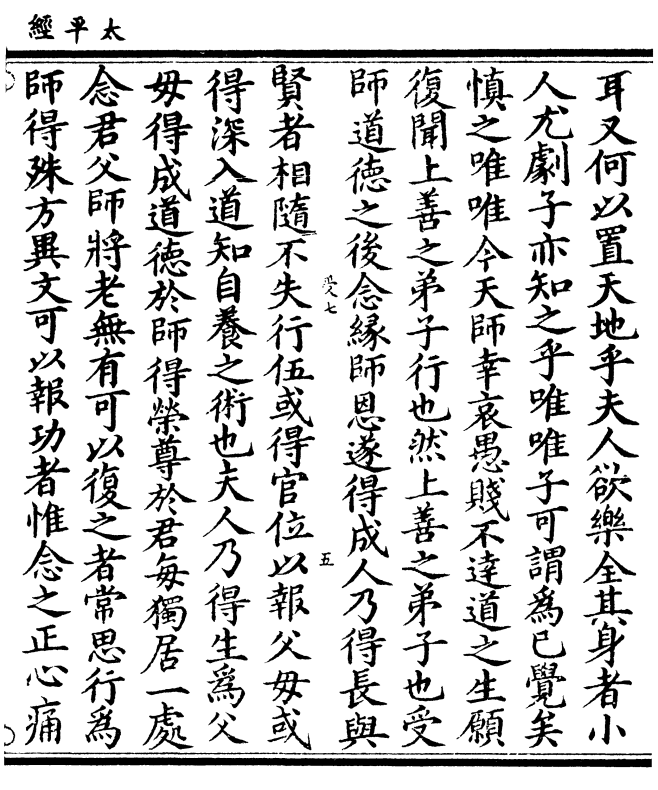 太平經
耳又何以置天地乎夫人欲樂全其身者小
人尤劇子亦知之乎唯唯子可謂爲已覺矣
慎之唯唯今天師幸哀愚賤不達道之生願
復聞上善之弟子行也然上善之弟子也受
師道德之後念緣師恩遂得成人乃得長與
受七
五
賢者相隨不失行伍或得官位以報父毋或
得深入道知自養之術也夫人乃得生爲父
毋得成道德於師得榮尊於君每獨居一處
念君父師將老無有可以復之者常思行爲
師得殊方異文可以報功者惟念之正心痛